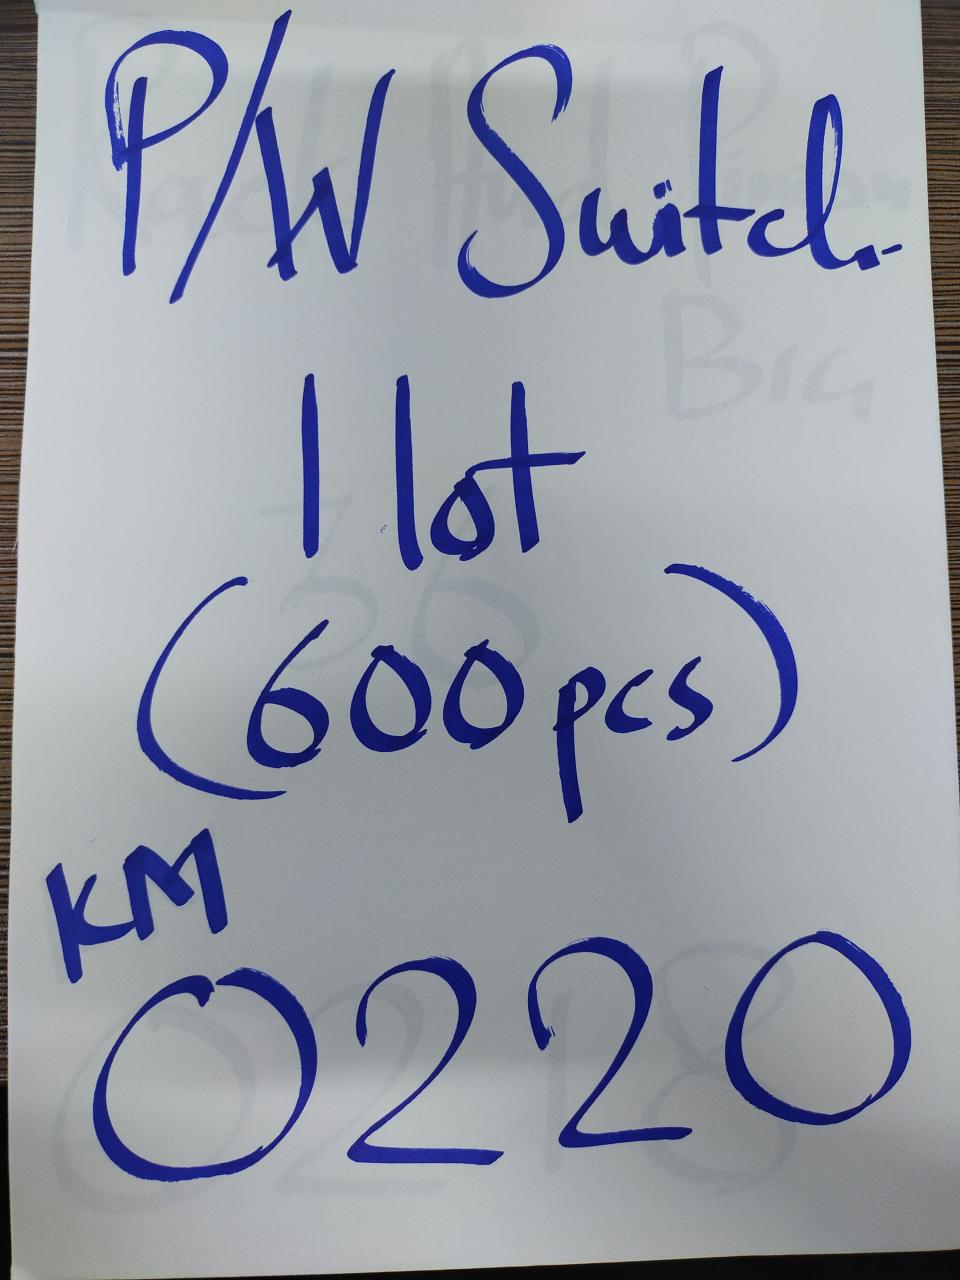 P/W Switch.
1 lot
(600pcs)
KM
0220